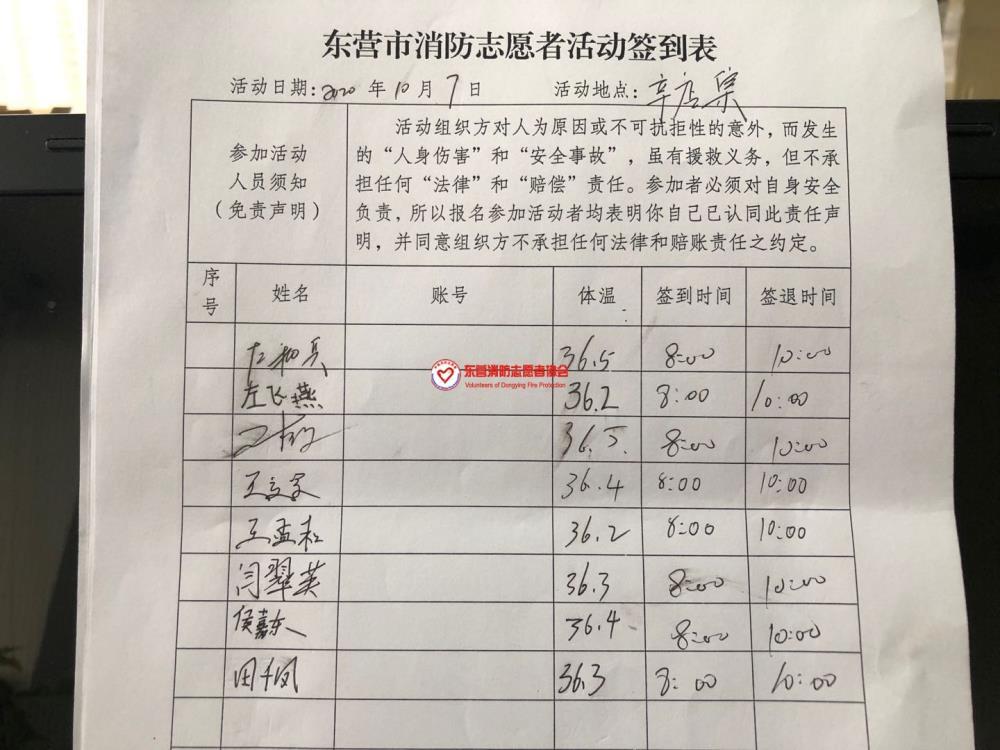 东营市消防志愿者活动签到表
活动日期：2020 年 10 月 7 日 活动地点：辛店集
参加活动
人员须知
（免责声明）
活动组织方对人为原因或不可抗拒性的意外，而发生
的“人身伤害”和“安全事故”，虽有援救义务，但不承
担任何“法律”和“赔偿”责任。参加者必须对自身安全
负责，所以报名参加活动者均表明你自己已认同此责任声
明，并同意组织方不承担任何法律和赔账责任之约定。
序号 姓名 账号 体温 签到时间 签退时间
36.5 8:00 10:00
东营消防志愿者协会
Volunteers of Dongying Fire Protection
左飞燕 36.2 8:00 10:00
36.5 8:00 10:00
36.4 8:00 10:00
王孟 36.2 8:00 10:00
闫翠英 36.3 8:00 10:00
侯嘉东 36.4 8:00 10:00
田千凤 36.3 8:00 10:00